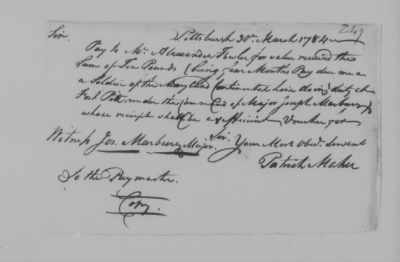 249
Pittsburgh 30th March 1784
Sir,
Pay to Mr. Alexander Fowler for value received the
Sum of Ten Pounds (being Months Pay due me as
a Soldier of the Maryland Continental Line doing duty at
Fort Pitt under the Command of Major Joseph Marbury)
whose receipt shall be a sufficient Voucher for
Sir, Your Most Obedt. Servant
Witness Jos. Marbury Major.
Patrick Maher
To the Paymaster.
Copy.